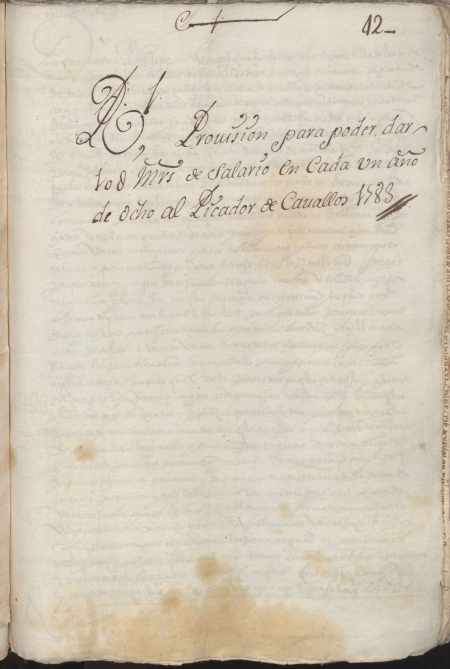 12
Provission para poder dar
10 8 Mrs de Salario en Cada un año
de ocho al Picador de Cauallos 1783